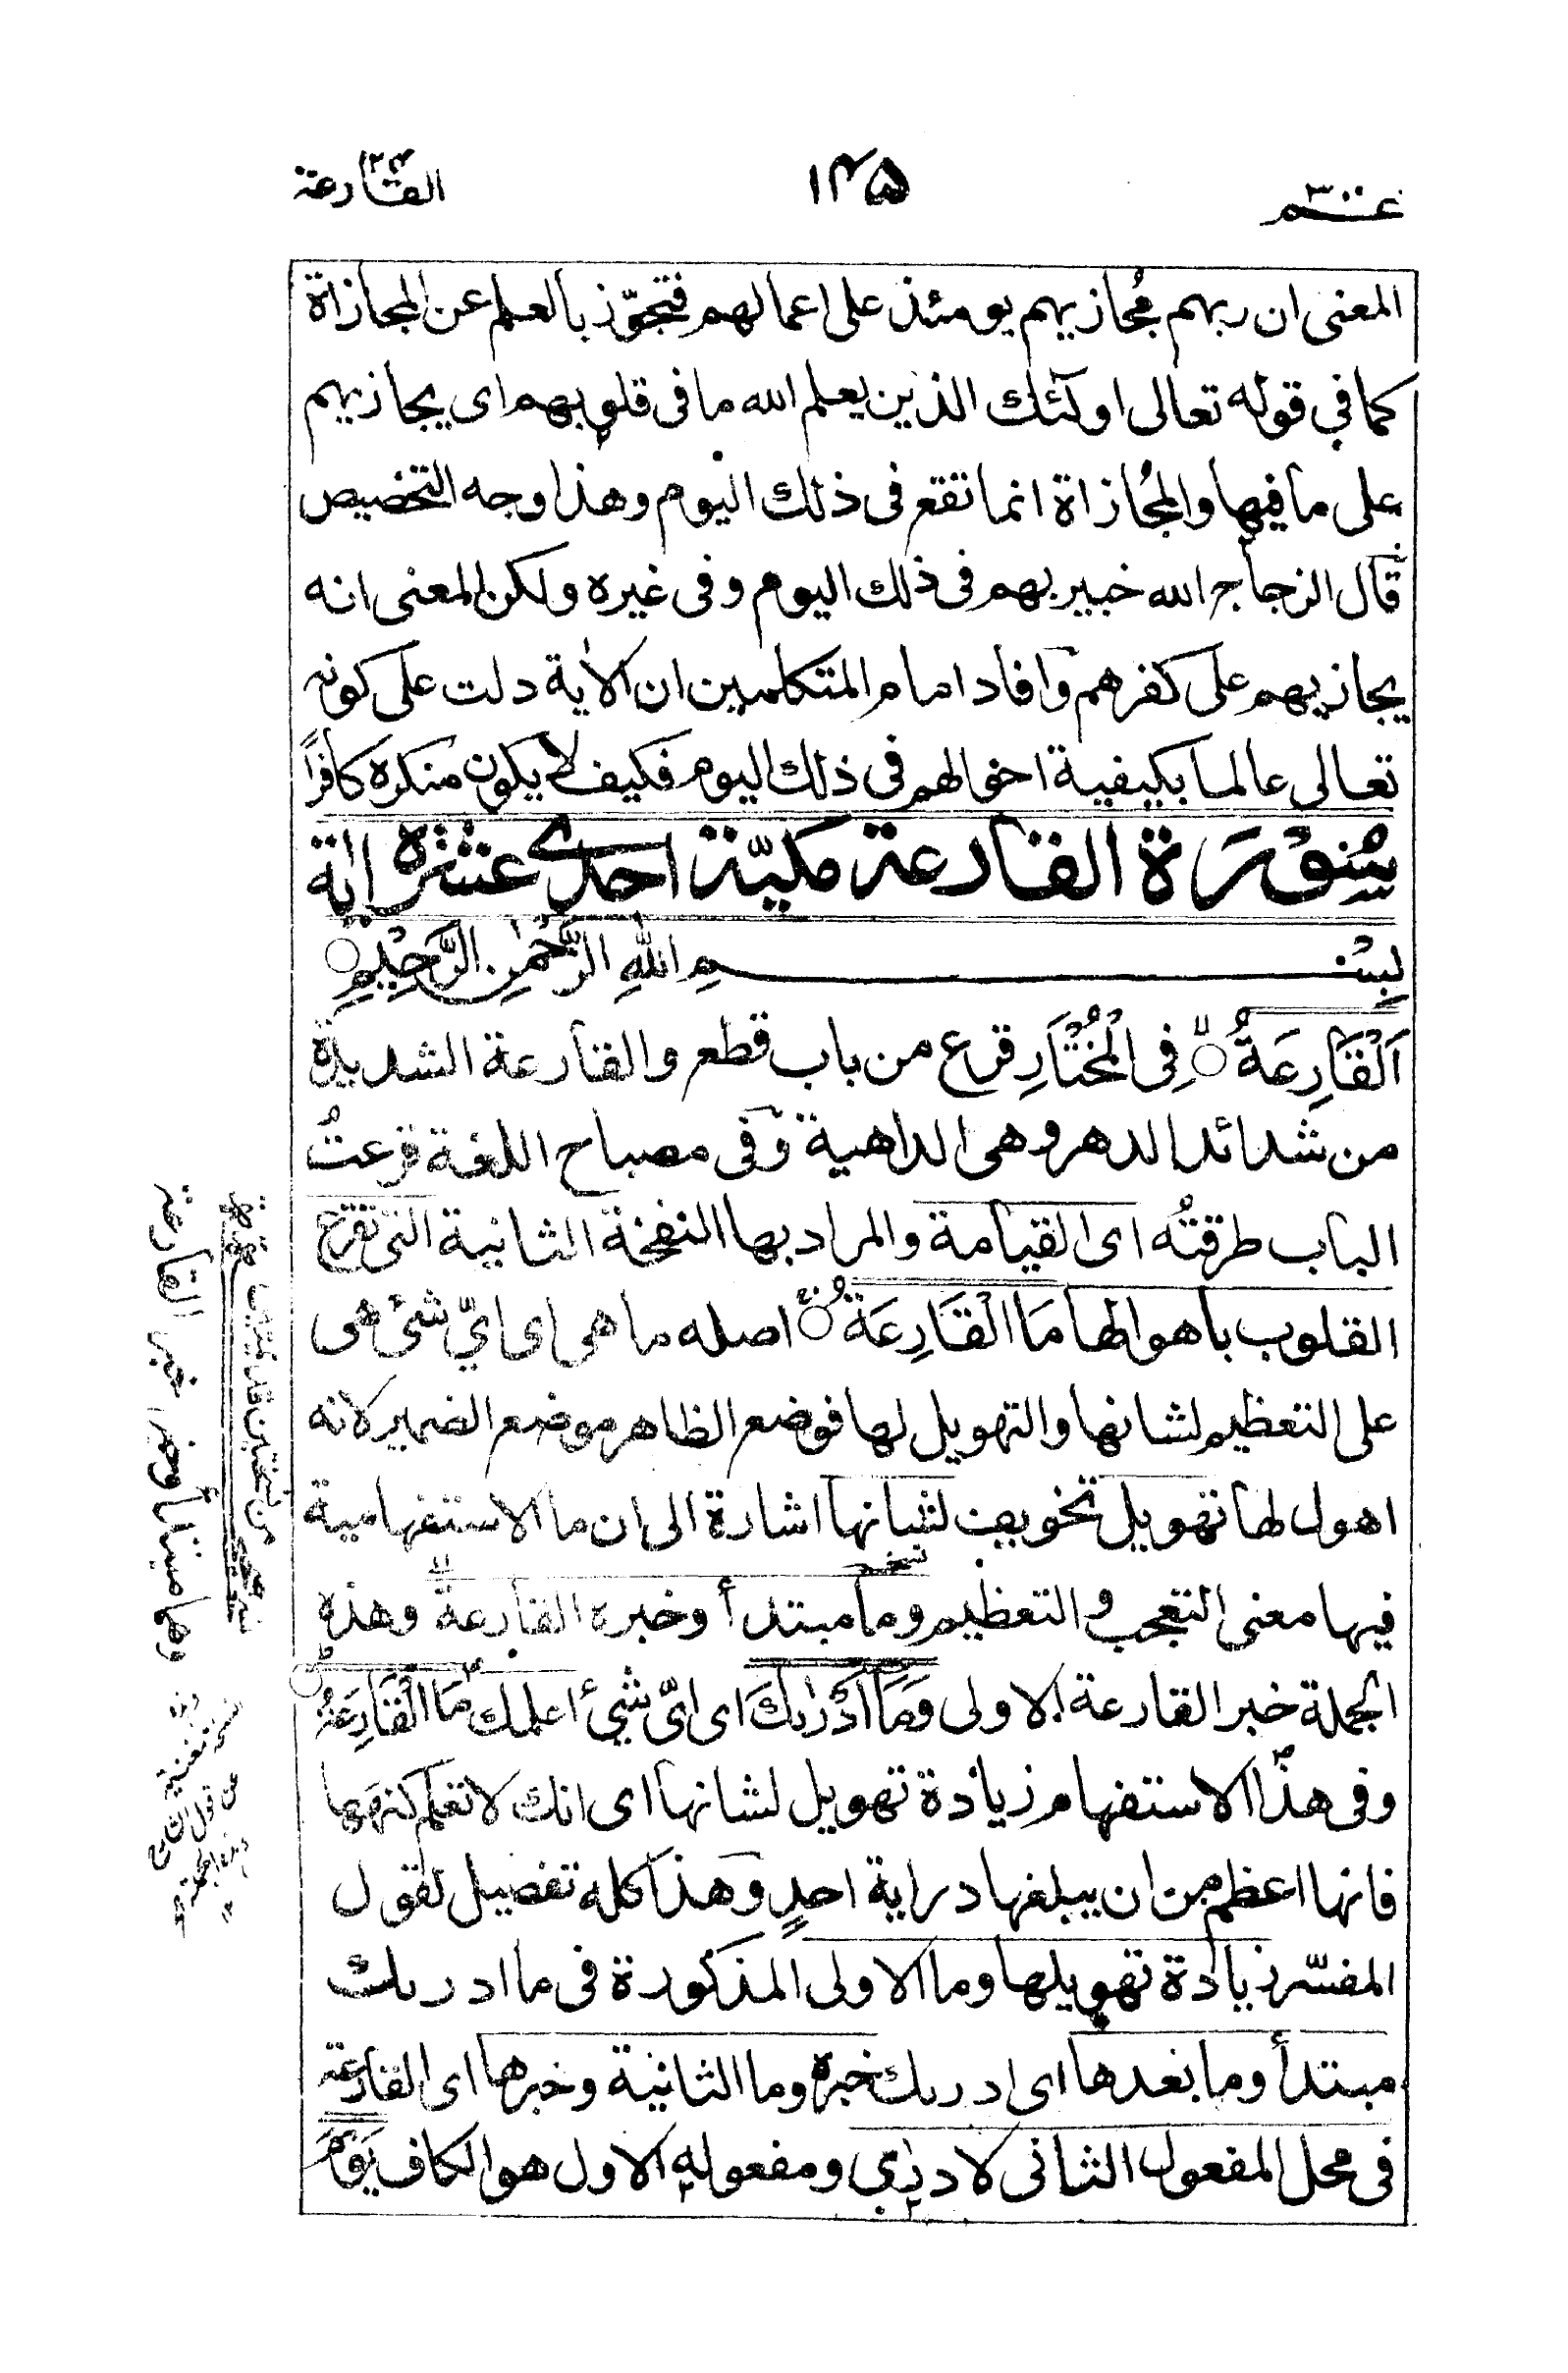 عم ٣٠
١٤٥
القارعة
المعنى ان ربهم مُجازيهم يومئذ على اعمالهم فتجوّز بالعلم عن المجازاة
كما في قوله تعالى اولئك الذين يعلم الله ما فى قلوبهم اى يجازيهم
على ما فيها والمجُازاة انما تقع فى ذلك اليوم وهذا وجه التخصيص
قال الزجاج الله خبير بهم فى ذلك اليوم وفى غيره ولكن المعنى انه
يجازيهم على كفرهم وافاد امام المتكلمين ان الاٰية دلت على كونه
تعالى عالما بكيفية احوالهم فى ذلك اليوم فكيف لا يكون منكره كافراً
سُوْرَة القارعة مكيّة احدى عشرة اٰية
بِسْمِ اللهِ الرَّحْمٰنِ الرَّحِيْمِ
اَلْقَارِعَةُ فِى الْمُخْتَارِ قرع من باب قطع والقارعة الشديدة
من شدائد الدهر وهى الداهية وفى مصباح اللغة قرعتُ
الباب طرقتُه اى القيامة والمراد بها النفخة الثانية التى تقرع
القلوب باهوالها مَا الْقَارِعَةُ اصله ما هى اى ايّ شئ هى
على التعظيم لشانها والتهويل لها فوضع الظاهر موضع الضمير لانه
اهول لها تهويل تخويف لشانها اشارة الى ان ما الاستفهامية
فيها معنى التعجب و التعظيم وما مبتدأ وخبره القارعة وهذه
الجملة خبر القارعة الاولى وَمَا اَدْرٰىكَ اى اىّ شئ اعلمك مَا الْقَارِعَةُ
وفى هذا الاستفهام زيادة تهويل لشانها اى انك لا تعلم كنهها
فانها اعظم من ان يبلغها دراية احدٍ وهذا كله تفصيل لقول
المفسّر زيادة تهويلها وما الاولى المذكورة فى ما ادرىك
مبتدأ وما بعدها اى ادرىك خبره وما الثانية وخبرها اى القارعة
فى محل المفعول الثانى لادرٰى ومفعوله الاول هو الكاف يَوْمَ
وما مبتدأ وخبر، خبر القارعة